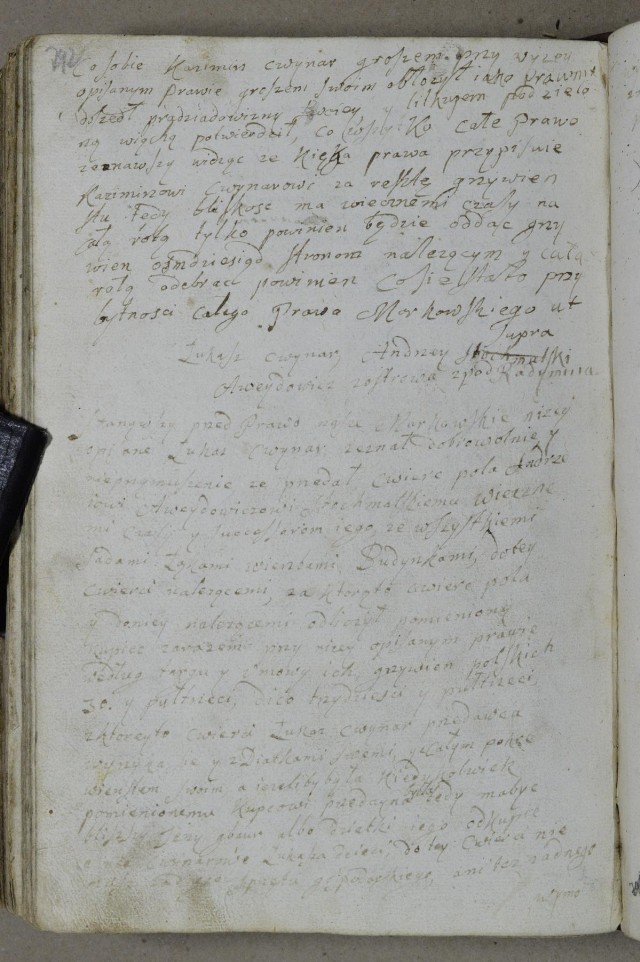 292
Co sobie Kazimirz Cwynar groszem przy wyzey
opisanym Prawie groszem swoim oblozył iako Prawni
doszedł pradziadowizny swoiey y litkupem podzielo
ną więczą potwierdził, Co wszytko Całe Prawo
zeznawszy widząc ze Xięga prawa przypisuie
Kazimirzowi Cwynarowi za resztę grzywien
stu tedy bliskosc ma wiecznemi czasy na
tą rolą tylko powinien będzie oddac grzy
wien osmdziesiąd stronom nalezącym y całą
rolą odebrac powinien Co sie stało przy
bytnosci całego Prawa Markowskiego ut
Supra
Łukasz Cwynarz Andrzey Stochmalski
Aweydowicz zostrowa zpod Radymna
Stanąwszy przed Prawo nasze Markowskie nizey
opisane Łukasz Cwynar zeznał dobrowolnie y
nieprzymuszenie ze przedał cwierc pola Andrze
iowi Aweydowiczowi Stochmalskiemu wieczne
mi czasy y Successorom iego, ze wszystkiemi
Sadami Łąkami wierzbami, Budynkami, do tey
Cwierci nalezącemi, za ktorąto cwierc pola
y doniey nalezącemi odliczył pomieniony
kupiec zarazem przy nizey opisanym prawie
według targu y umowy ich, grzywien polskich
30. y pułtrzeci, dico trzydziesci y pułtrzeci,
zktoreyto cwierci Łukasz Cwynar przedawca
wyrzyka sie y zDiatkami swemi, y całym pokre
wienstwem swoim a iezeliby była kiedyszkolwiek
pomienionemu kupcowi przedayna tedy maby
bliszy przy gorze albo dzietki iego odkupic
nie
ani tez zadnego